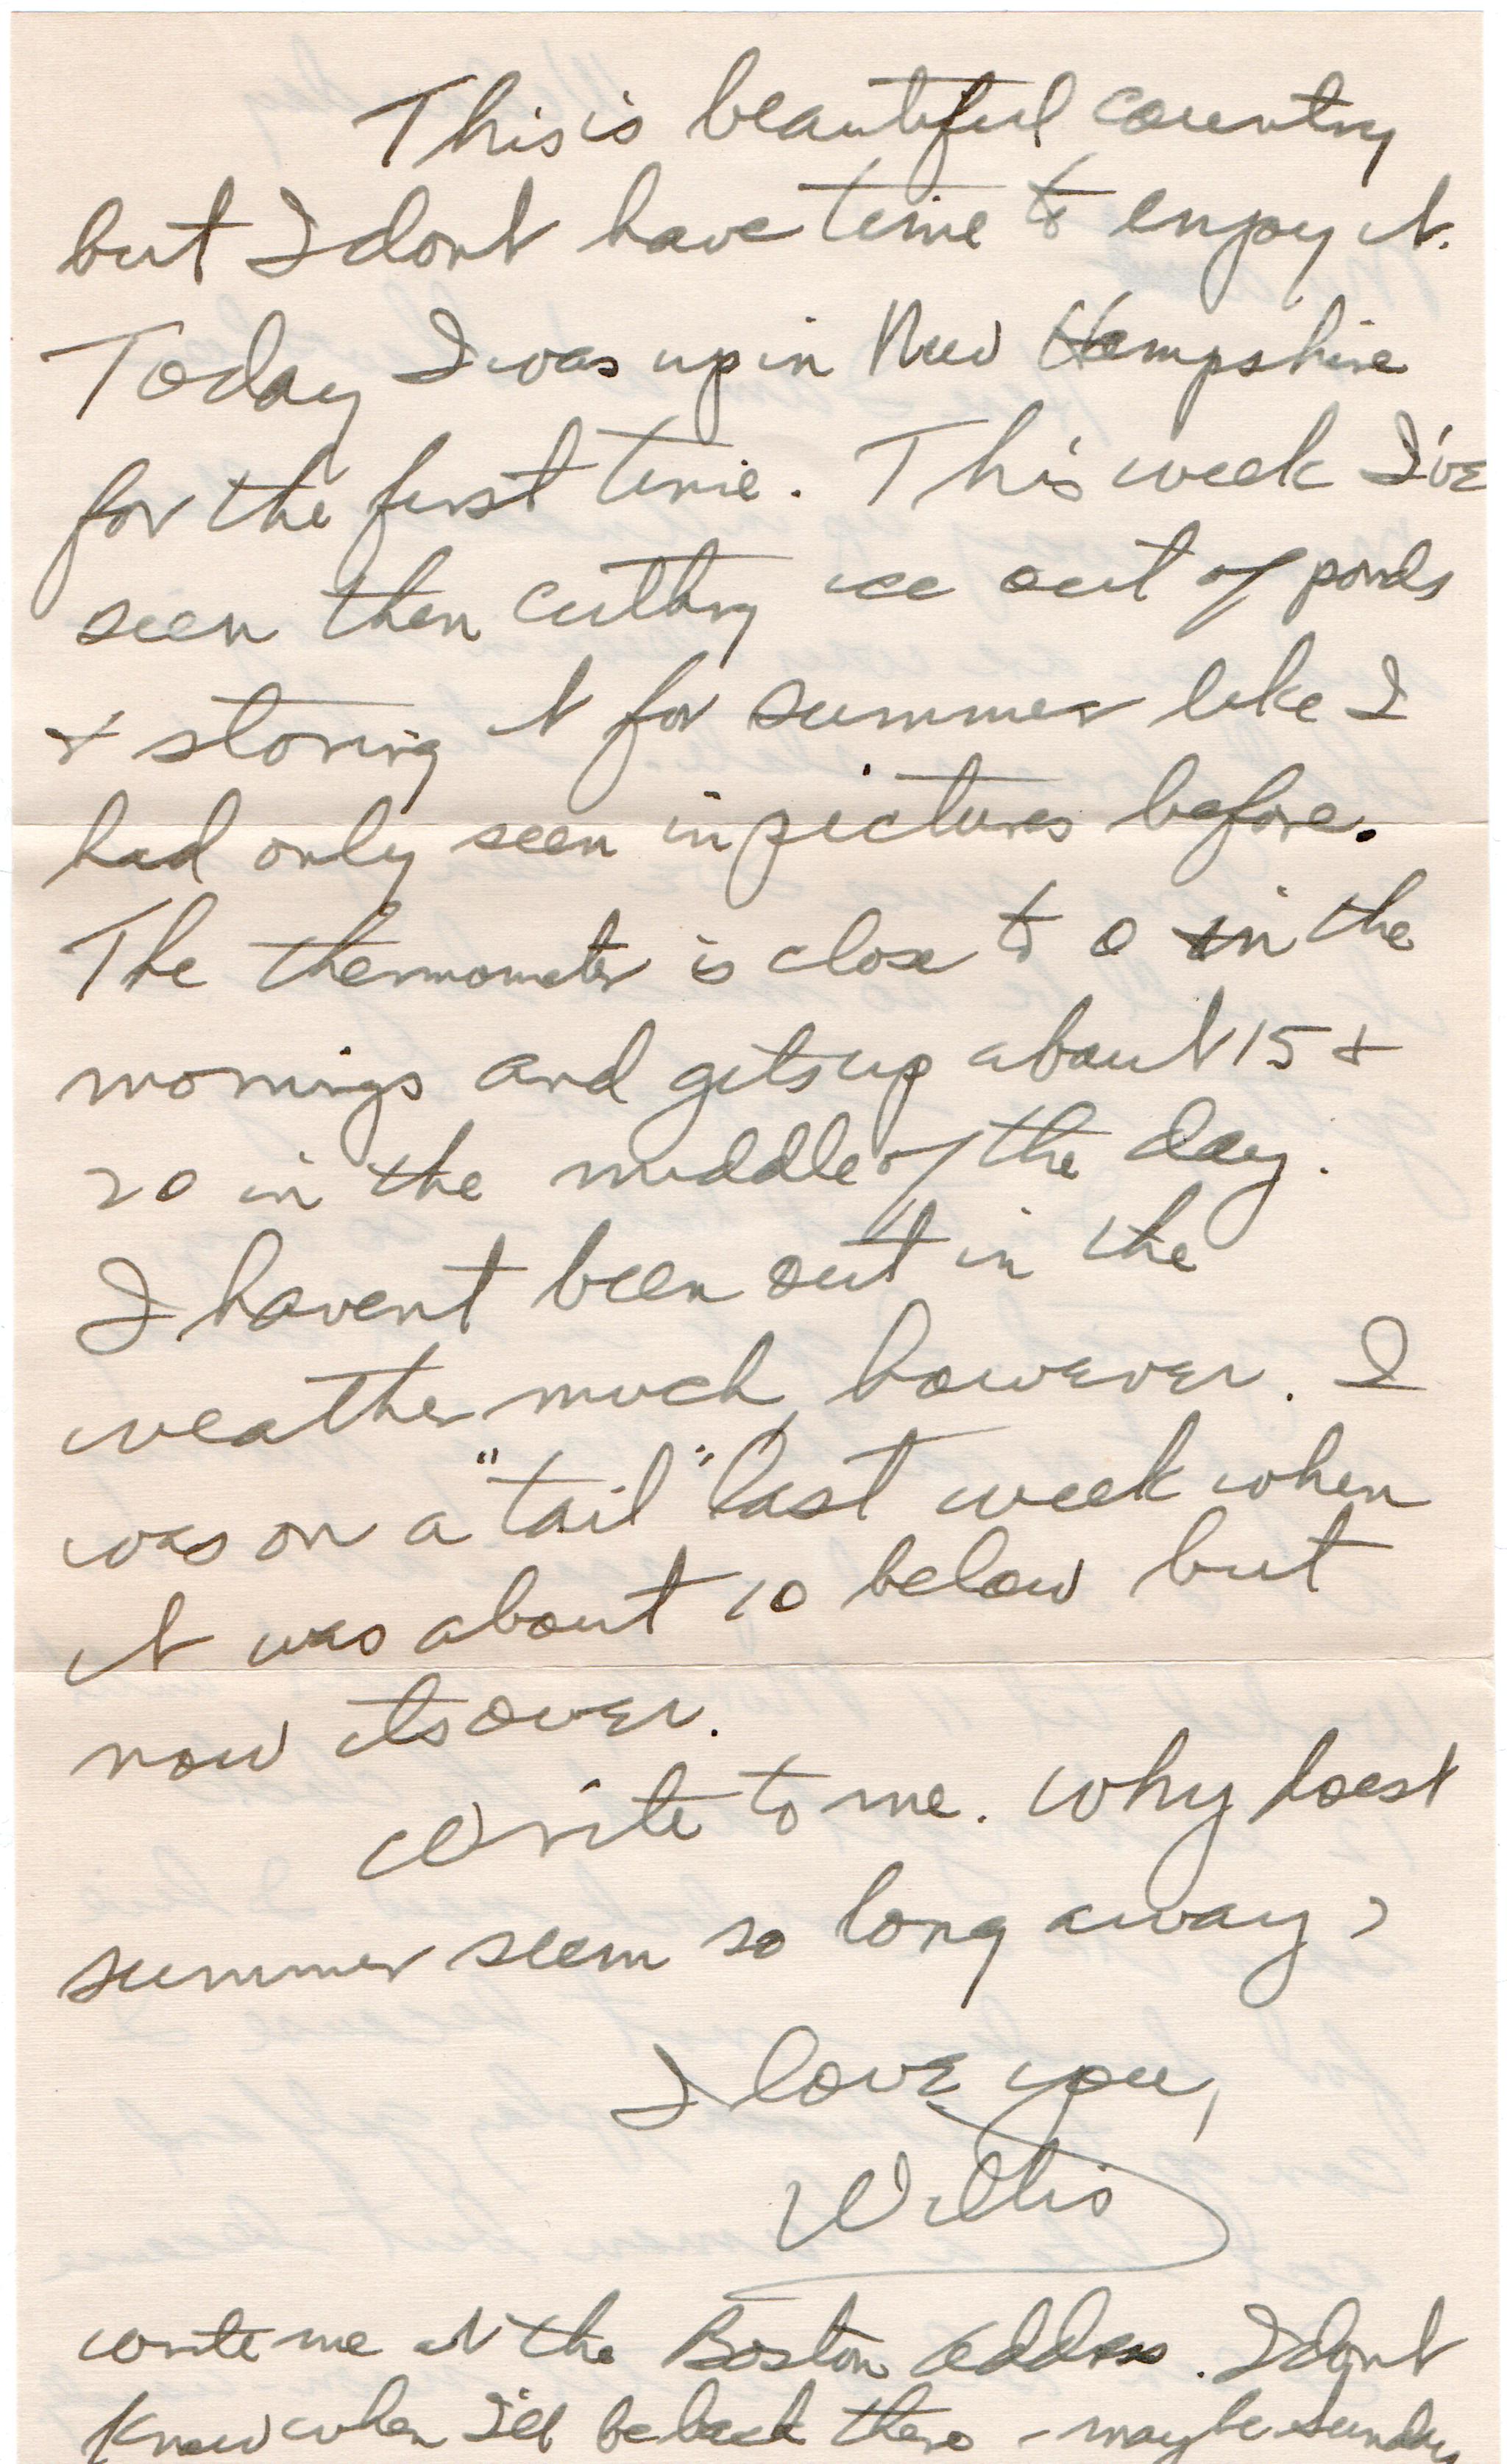 This is beautiful country
but I dont have time to enjoy it.
Today I was up in New Hampshire
for the first time. This week I've
seen them cutting ice out of ponds
& storing it for summer like I
had only seen in pictures before.
The thermometer is close to 0 in the
mornings and gets up about 15 &
20 in the middle of the day.
I havent been out in the
weather much, however. I
was on a "tail" last week when
it was about 10 below but
now its over.
Write to me. Why does
summer seem so long away?
I love you,
Willis
write me at the Boston address. I dont
know when I'll be back there - maybe sunday